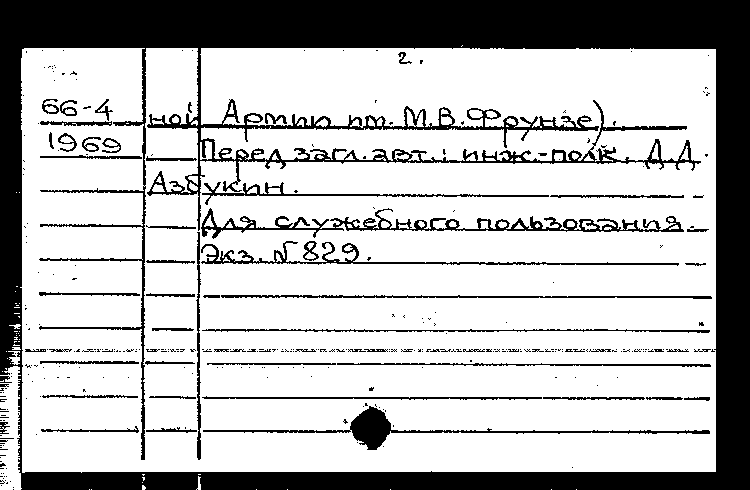 2.
66-4 ной Армии им. М.В.Фрунзе).
1969 Перед загл. авт.: инж.-полк. Д.Д.
Азбукин.
Для служебного пользования.
Экз. N 829.